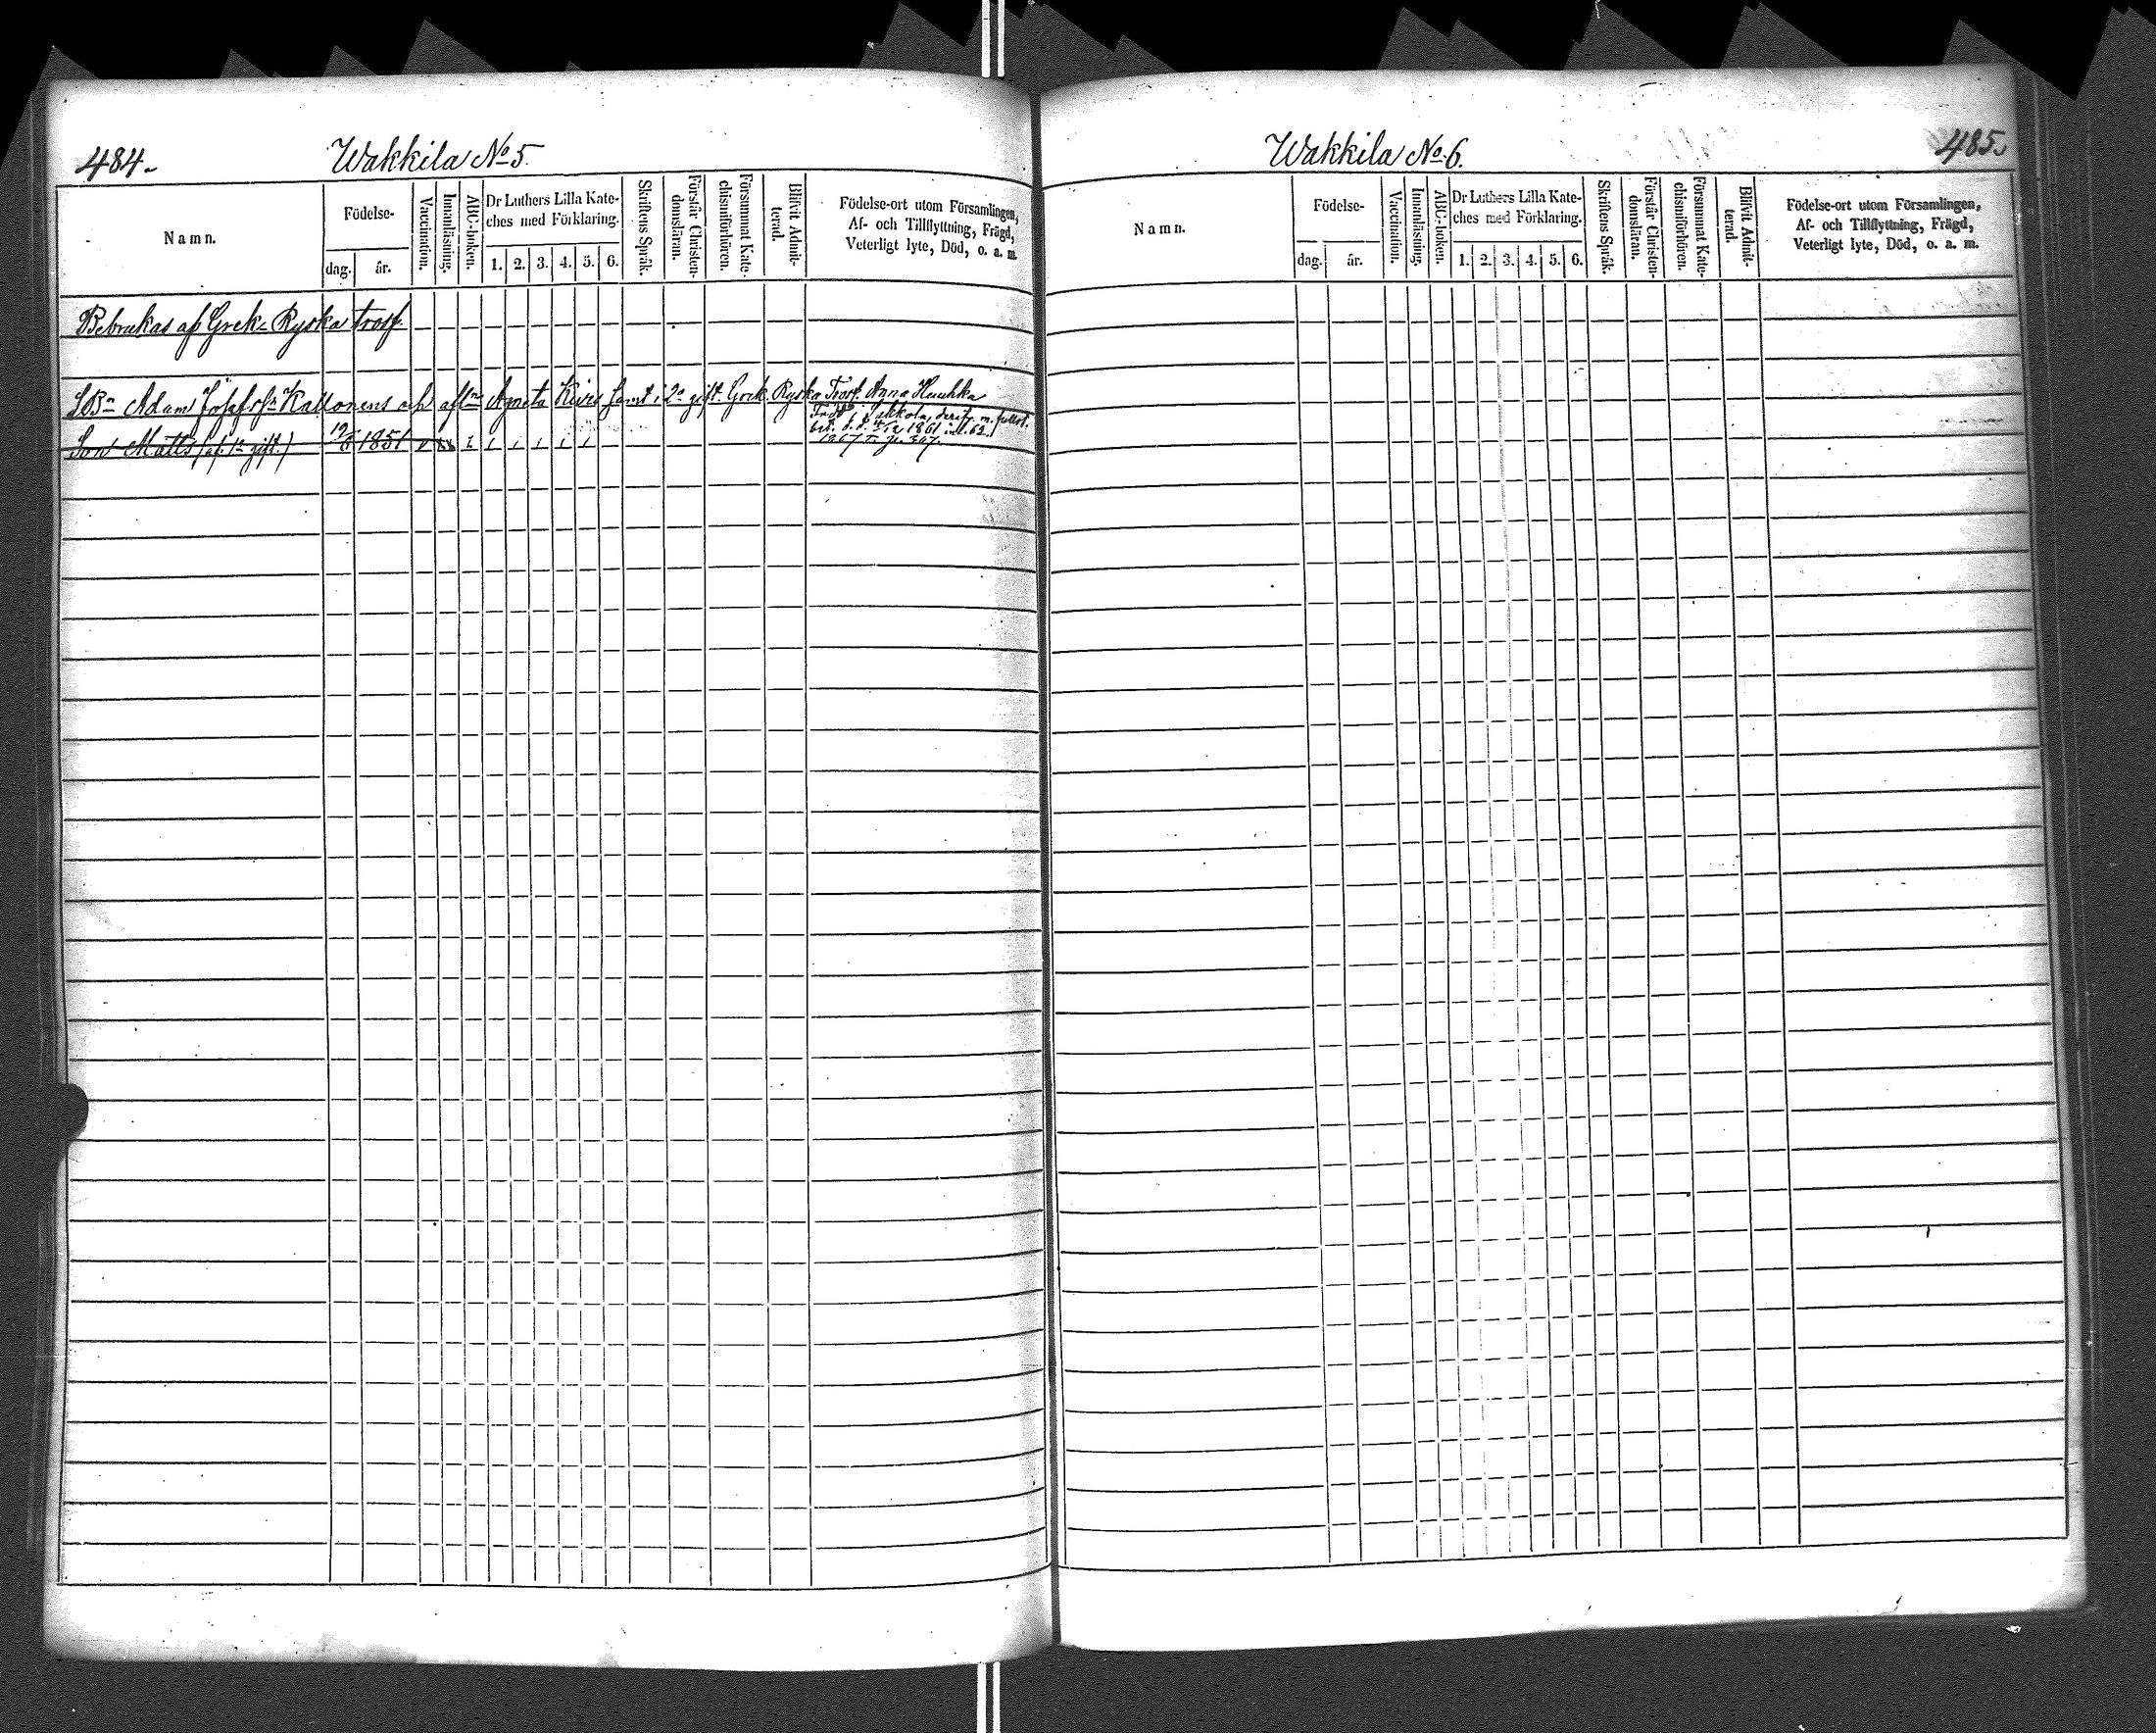 484.
Wakkila No 5.
Namn.
Födelse-
dag.
år.
Vaccination.
Innanläsning.
ABC-boken.
Dr Luthers Lilla Kate-
ches med Förklaring.
1. 2. 3. 4. 5. 6.
Skriftens Språk.
Förstår Christen-
domsläran.
Försummat Kate-
chismiförhören.
Blifvit Admit-
terad.
Födelse-ort utom Församlingen,
Af- och Tillflyttning, Frägd,
Veterligt lyte, Död, o. a. m.
Bebrukas af Grek. Ryska trosf.
Adam Kallonens Agneta Kivis samt i 2a gift. Grek. Ryska Trosf. Anna
Son Matts (af 1a gift.) 1851
1867
Wakkila No 6.
485.
Namn.
Födelse-
dag.
år.
Vaccination.
Innanläsning.
ABC-boken.
Dr Luthers Lilla Kate-
ches med Förklaring.
1. 2. 3. 4. 5. 6.
Skriftens Språk.
Förstår Christen-
domsläran.
Försummat Kate-
chismiförhören.
Blifvit Admit-
terad.
Födelse-ort utom Församlingen,
Af- och Tillflyttning, Frägd,
Veterligt lyte, Död, o. a. m.